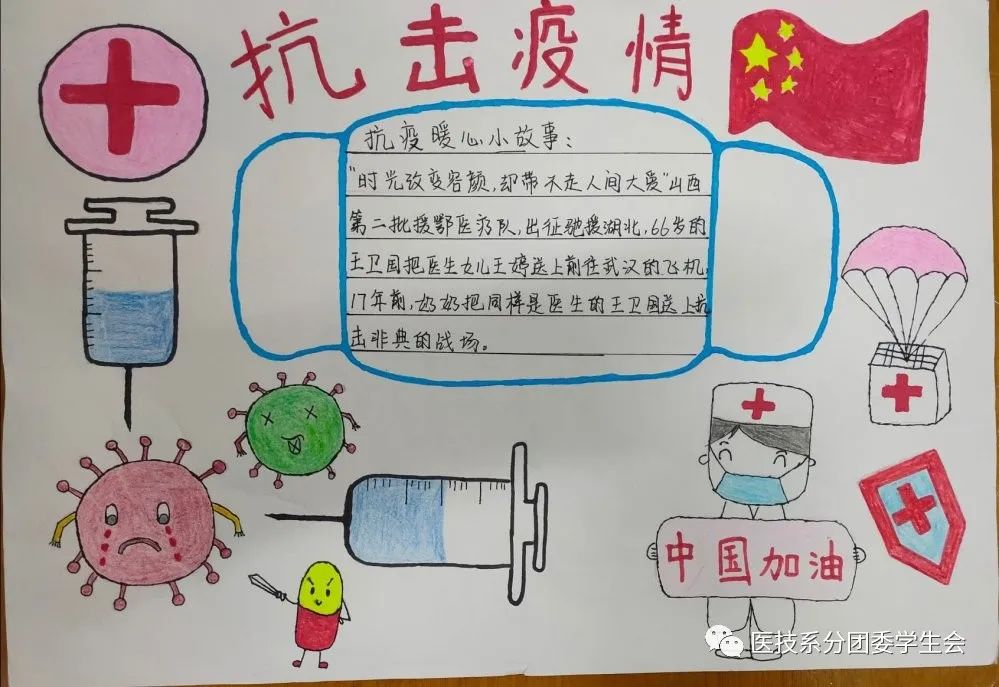 抗击疫情
抗疫暖心小故事：
"时光改变容颜，却带不走人间大爱"山西
第二批援鄂医疗队，出征驰援湖北，66岁的
王卫国把医生女儿王婷送上前往武汉的飞机，
17年前，奶奶把同样是医生的王卫国送上抗
击非典的战场。
中国加油
医技系分团委学生会